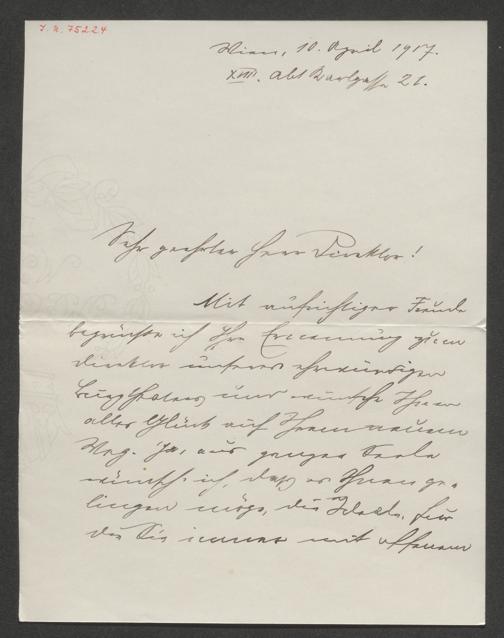 J. N. 75224
Wien, 10. April 1917.
XVIII. Abt Karlgasse 21.
Sehr geehrter Herr Direktor!
Mit aufrichtiger Freude
begrüßte ich Ihre Ernennung zum
Direktor unseres ehrwürdigen
Burgtheaters und wünsche Ihnen
alles Glück auf Ihrem neuen
Weg. Ja, aus ganzer Seele
wünsche ich, daß es Ihnen ge-
lingen möge, die Ideale, für
die Sie immer mit offenem